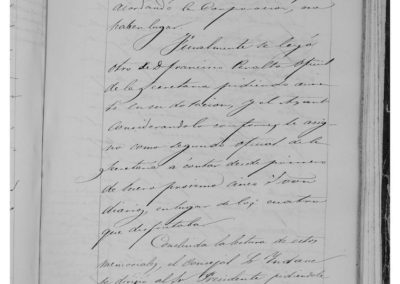 acordando la Corporación, no
haber lugar.
Igualmente se leyó
otro de D. Francisco Peralta oficial
de la secretaria pidiendo aumen
to en su dotacion, y el Ayunt.
considerandolo conforme, le asig
no como segundo oficial de la
secretaria a contar desde primero
de Enero proximo
diarios, en lugar de los cuatro
que disfrutaba.
Concluida la lectura de estos
memoriales, el concejal Sr.
se dirijio al Sr. Presidente pidiendole